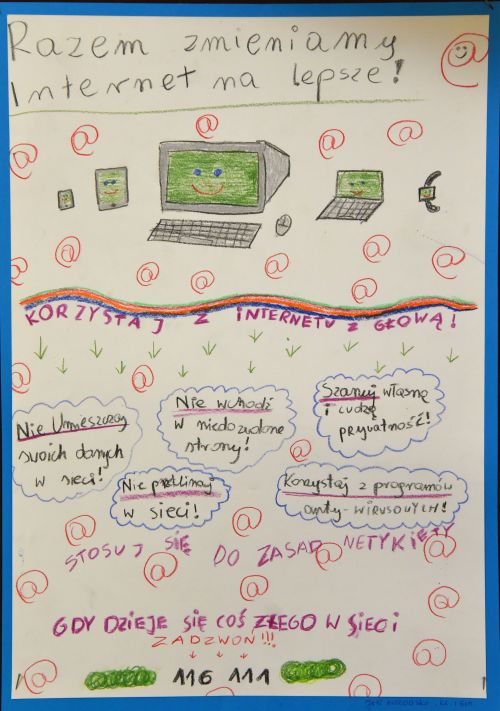 Razem zmieniamy
Internet na lepsze!
KORZYSTAJ Z INTERNETU Z GŁOWĄ!
Nie Umieszczaj
swoich danych
w sieci!
Nie wchodź
w niedozwolone
strony!
Szanuj własną
i cudzą
prywatność!
Nie przeklinaj
w sieci!
Korzystaj z programów
anty-wirusowych!
STOSUJ SIĘ DO ZASAD NETYKIETY
GDY DZIEJE SIĘ COŚ ZŁEGO W SIECI
ZADZWOŃ!!!
116 111